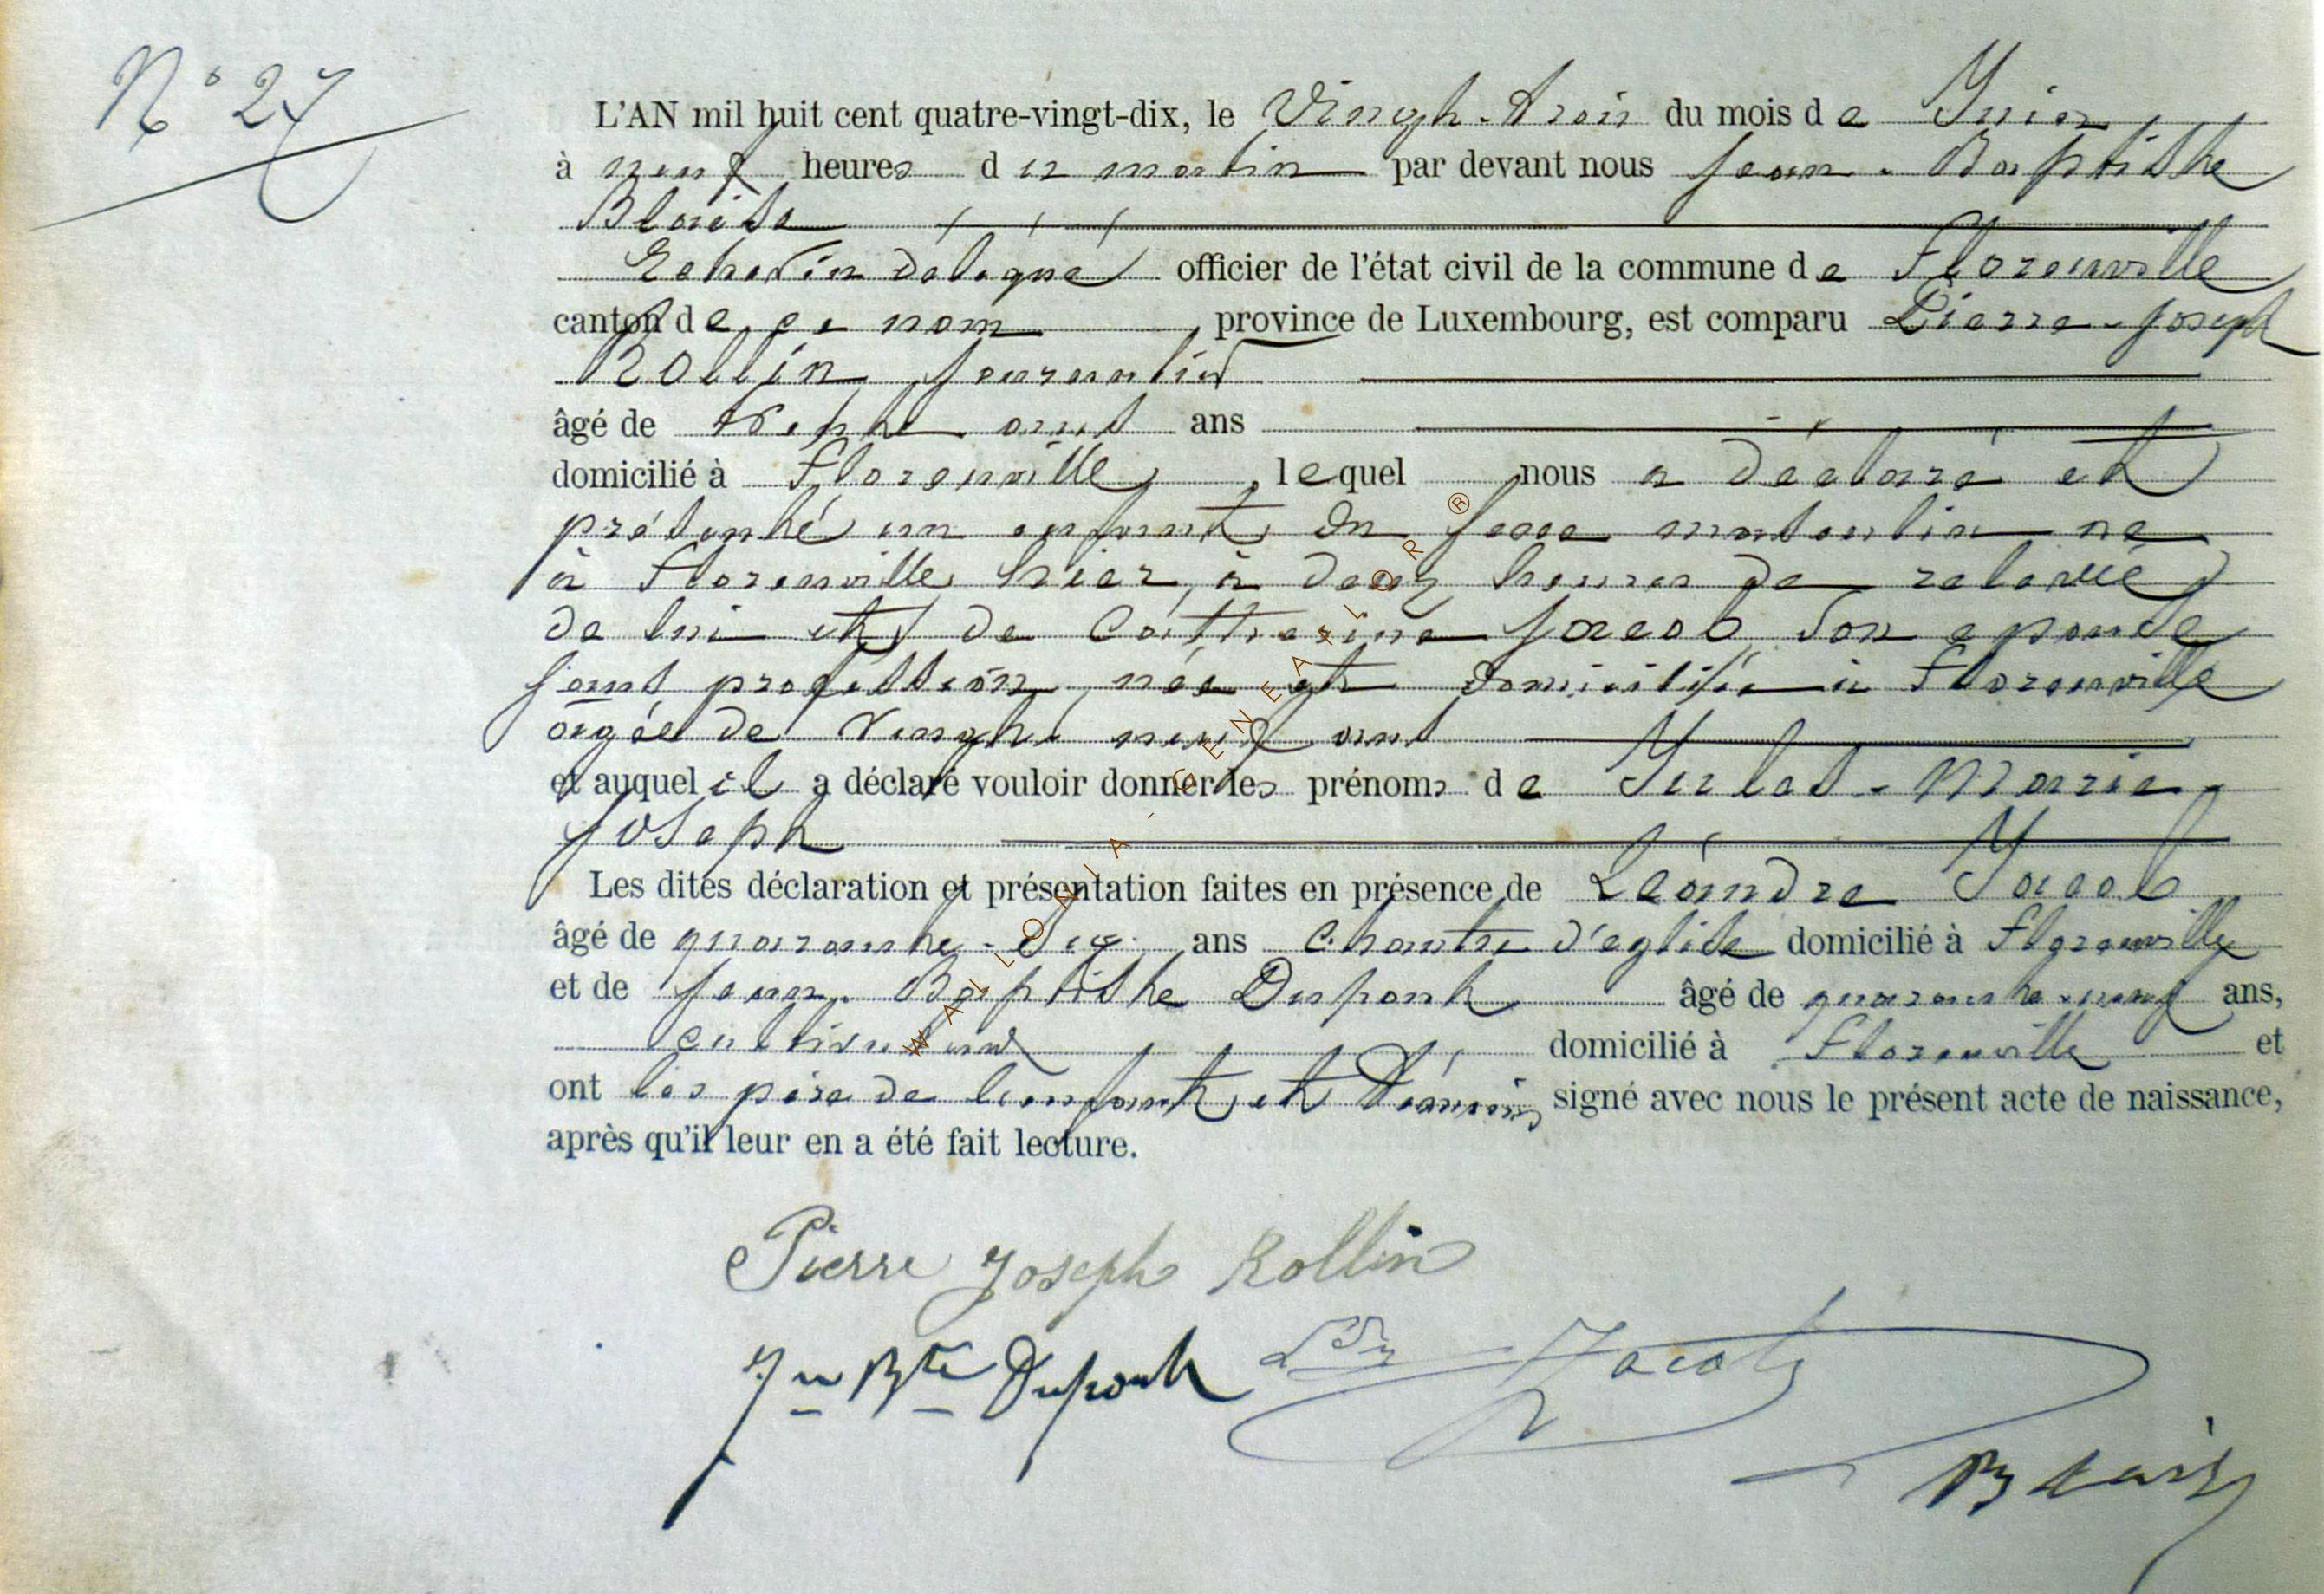 N° 27
L'AN mil huit cent quatre-vingt-dix, le Vingt-trois du mois de Juin
à neuf heures du matin par devant nous Jean-Baptiste
Blaise
Echevin délégué officier de l'état civil de la commune de Florenville
canton de ce nom, province de Luxembourg, est comparu Pierre-Joseph
Rollin, journalier
âgé de trente ans
domicilié à Florenville, lequel nous a déclaré et
présenté un enfant du sexe masculin né
à Florenville hier, à deux heures de relevée
de lui et de Catherine Jacob, son épouse
sans profession, née et domiciliée à Florenville
âgée de vingt-neuf ans
et auquel il a déclaré vouloir donner les prénoms de Jules-Marie-
Joseph
Les dites déclaration et présentation faites en présence de Léandre Jacob
âgé de quarante- ans chantre d'eglise domicilié à Florenville
et de Jean-Baptiste Dupont âgé de quarante-neuf ans,
cultivateur domicilié à Florenville et
ont les père de l'enfant et témoins signé avec nous le présent acte de naissance,
après qu'il leur en a été fait lecture.
Pierre Joseph Rollin
Jn Bte Dupont Jacob
Blaise
WALLONIA-GENEALOR®